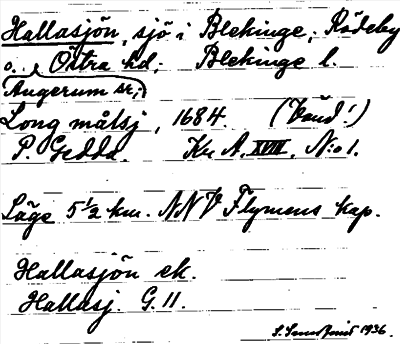 Hallasjön, sjö i Blekinge; Rödeby
o. Östra hd; Blekinge l.
Augerum sn;
Long målsj, 1684. (Väud!)
P. Gedda. Kr A. XVIII. N:o 1.
Läge 5 1/2 km. NNV Flymens kap.
Hallasjön ek.
Hallasj. G. 11.
1936.